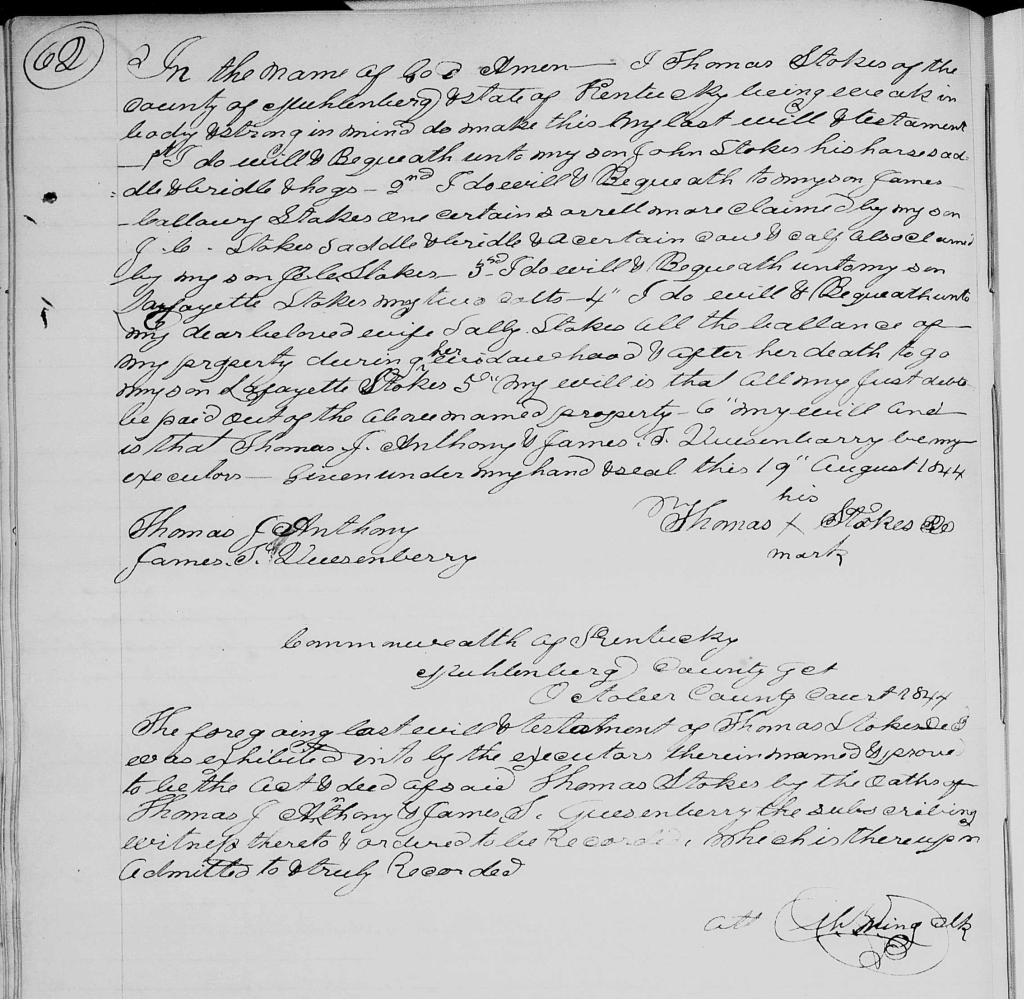 62
In the name of God Amen — I Thomas Stokes of the
County of Muhlenberg & state of Kentucky being weak in
body & strong in mind do make this my last will & testament
— 1st I do will & Bequeath unto my son John Stokes his horse sad-
dle & bridle & hogs — 2nd I do will & Bequeath to my son James
Callaway Stokes one certain sorrell mare claimed by my son
J. C. Stokes saddle & bridle & a certain cow & calf also claimd
by my son Stokes — 3rd I do will & Bequeath unto my son
Layfayette Stokes my two colts — 4" I do will & Bequeath unto
my dear beloved wife Sally Stokes all the ballance of
my property during her widowhood & after her death to go
my son Layfayette Stokes 5" my will is that all my Just debts
be paid out of the above named property — 6" my will and
is that Thomas J. Anthony & James. T. Quesenbarry be my
executors — Given under my hand & seal this 19" August 1844
his
Thomas J Anthony Thomas X Stokes
James. T. Quesenberry mark
Commonwealth of Kentucky
Muhlenberg County Sct
October County Court 1844
The foregoing last will & testament of Thomas Stokes Decd
was exhibited into by the executors therein named & prove
to be the act & deed of said Thomas Stokes by the oaths of
Thomas J Anthony & James T. Quesenberry the subscribing
witness thereto & ordered to be Recorded, Whech is thereupon
Admitted to & truly Recorded
att Wing Clk